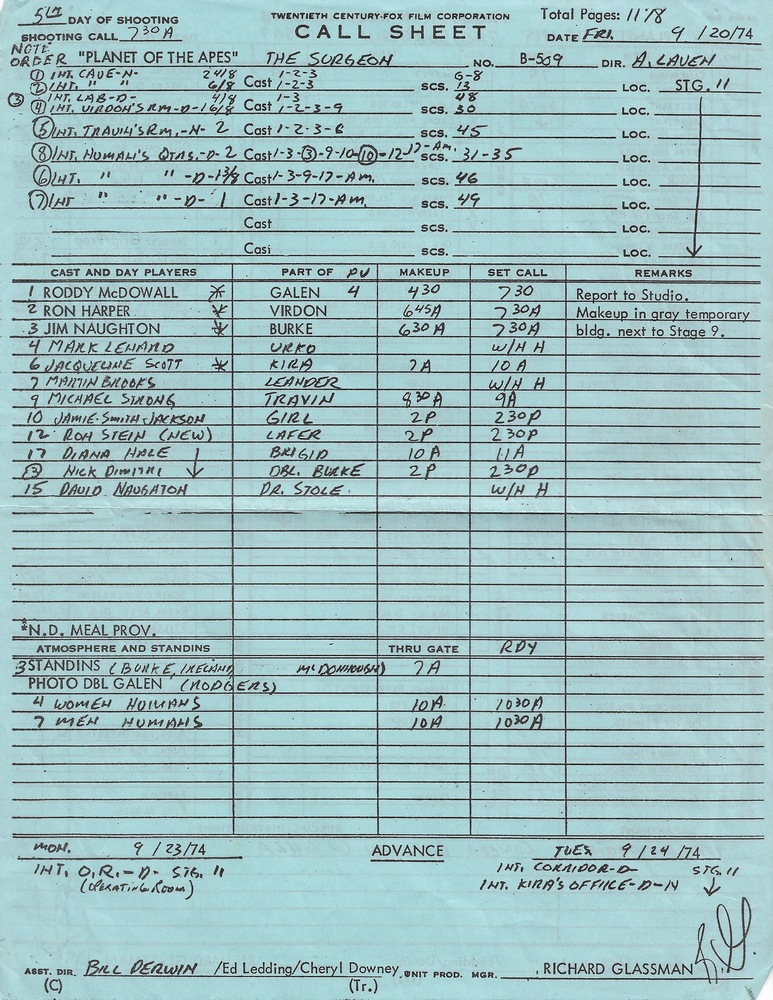 5th DAY OF SHOOTING TWENTIETH CENTURY-FOX FILM CORPORATION Total Pages: 11 7/8
SHOOTING CALL 730A CALL SHEET DATE FRI. 9/20/74
NOTE
ORDER "PLANET OF THE APES" THE SURGEON NO. B-509 DIR. A. LAVEN
① INT. CAVE-N- 2 4/8 Cast 1-2-3 SCS. 6-8 LOC. STG. 11
② INT. " " 6/8 Cast 1-2-3 SCS. 13 LOC.
③ INT. LAB-D- 4/8 1-3 48
④ INT. VIRDON'S RM-D- 1 6/8 Cast 1-2-3-9 SCS. 30 LOC.
⑤ INT. TRAVIN'S RM.-N- 2 Cast 1-2-3-6 SCS. 45 LOC.
⑧ INT. HUMAN'S QTRS.-D- 2 Cast 1-3-③-9-10-⑩-12-17-Am. SCS. 31-35 LOC.
⑥ INT. " " -D- 1 3/8 Cast 1-3-9-17-Am. SCS. 46 LOC.
⑦ INT " " -D- 1 Cast 1-3-17-Am. SCS. 49 LOC.
Cast SCS. LOC.
Cast SCS. LOC.
CAST AND DAY PLAYERS PART OF PU MAKEUP SET CALL REMARKS
1 RODDY McDOWALL * GALEN 4 430 730 Report to Studio.
2 RON HARPER * VIRDON 645A 730A Makeup in gray temporary
3 JIM NAUGHTON * BURKE 630A 730A bldg. next to Stage 9.
4 MARK LENARD URKO W/H H
6 JACQUELINE SCOTT * KIRA 7A 10A
7 MARTIN BROOKS LEANDER W/H H
9 MICHAEL STRONG TRAVIN 830A 9A
10 JAMIE-SMITH JACKSON GIRL 2P 230P
12 RON STEIN (NEW) LAFER 2P 230P
17 DIANA HALE BRIGID 10A 11A
③ NICK DIMITRI DBL. BURKE 2P 230P
15 DAVID NAUGATON DR. STOLE. W/H H
*N.D. MEAL PROV.
ATMOSPHERE AND STANDINS THRU GATE RDY
3 STANDINS (BURKE, IRELAND McDONHOUGH) 7A
PHOTO DBL GALEN (RODGERS)
4 WOMEN HUMANS 10A 1030A
7 MEN HUMANS 10A 1030A
MON. 9/23/74 ADVANCE TUES 9/24/74
INT. O.R.-D- STG. 11 INT. CORRIDOR-D- STG. 11
(OPERATING ROOM) INT. KIRA'S OFFIICE-D-N
ASST. DIR. BILL DERWIN /Ed Ledding/Cheryl Downey UNIT PROD. MGR. RICHARD GLASSMAN
(C) (Tr.)